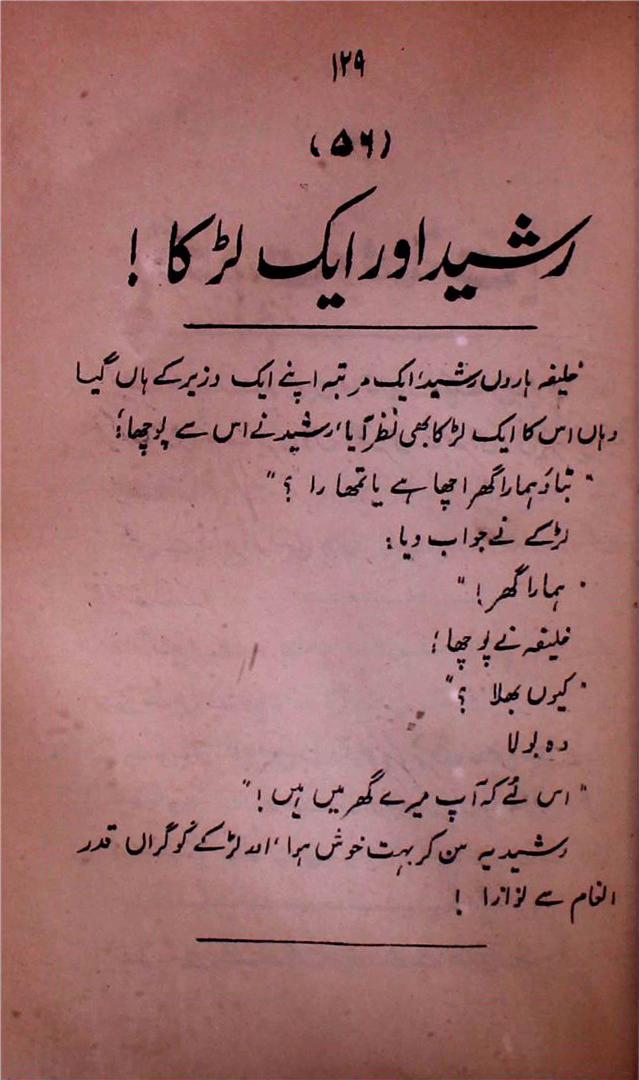 ۱۲۹
(۵۶)
رشید اور ایک لڑکا !
خلیفہ ہاروں رشید، ایک مرتبہ اپنے ایک وزیر کے ہاں گیا
وہاں اس کا ایک لڑکا بھی نظر آیا، رشید نے اس سے پوچھا؛
"بتاؤ ہمارا گھر اچھا ہے یا تمھارا ؟"
لڑکے نے جواب دیا:
"ہمارا گھر !"
خلیفہ نے پوچھا؛
"کیوں بھلا ؟"
وہ بولا
"اس لئے کہ آپ میرے گھر میں ہیں !"
رشید یہ سن کر بہت خوش ہوا، اور لڑکے کو گراں قدر
انعام سے نوازا !